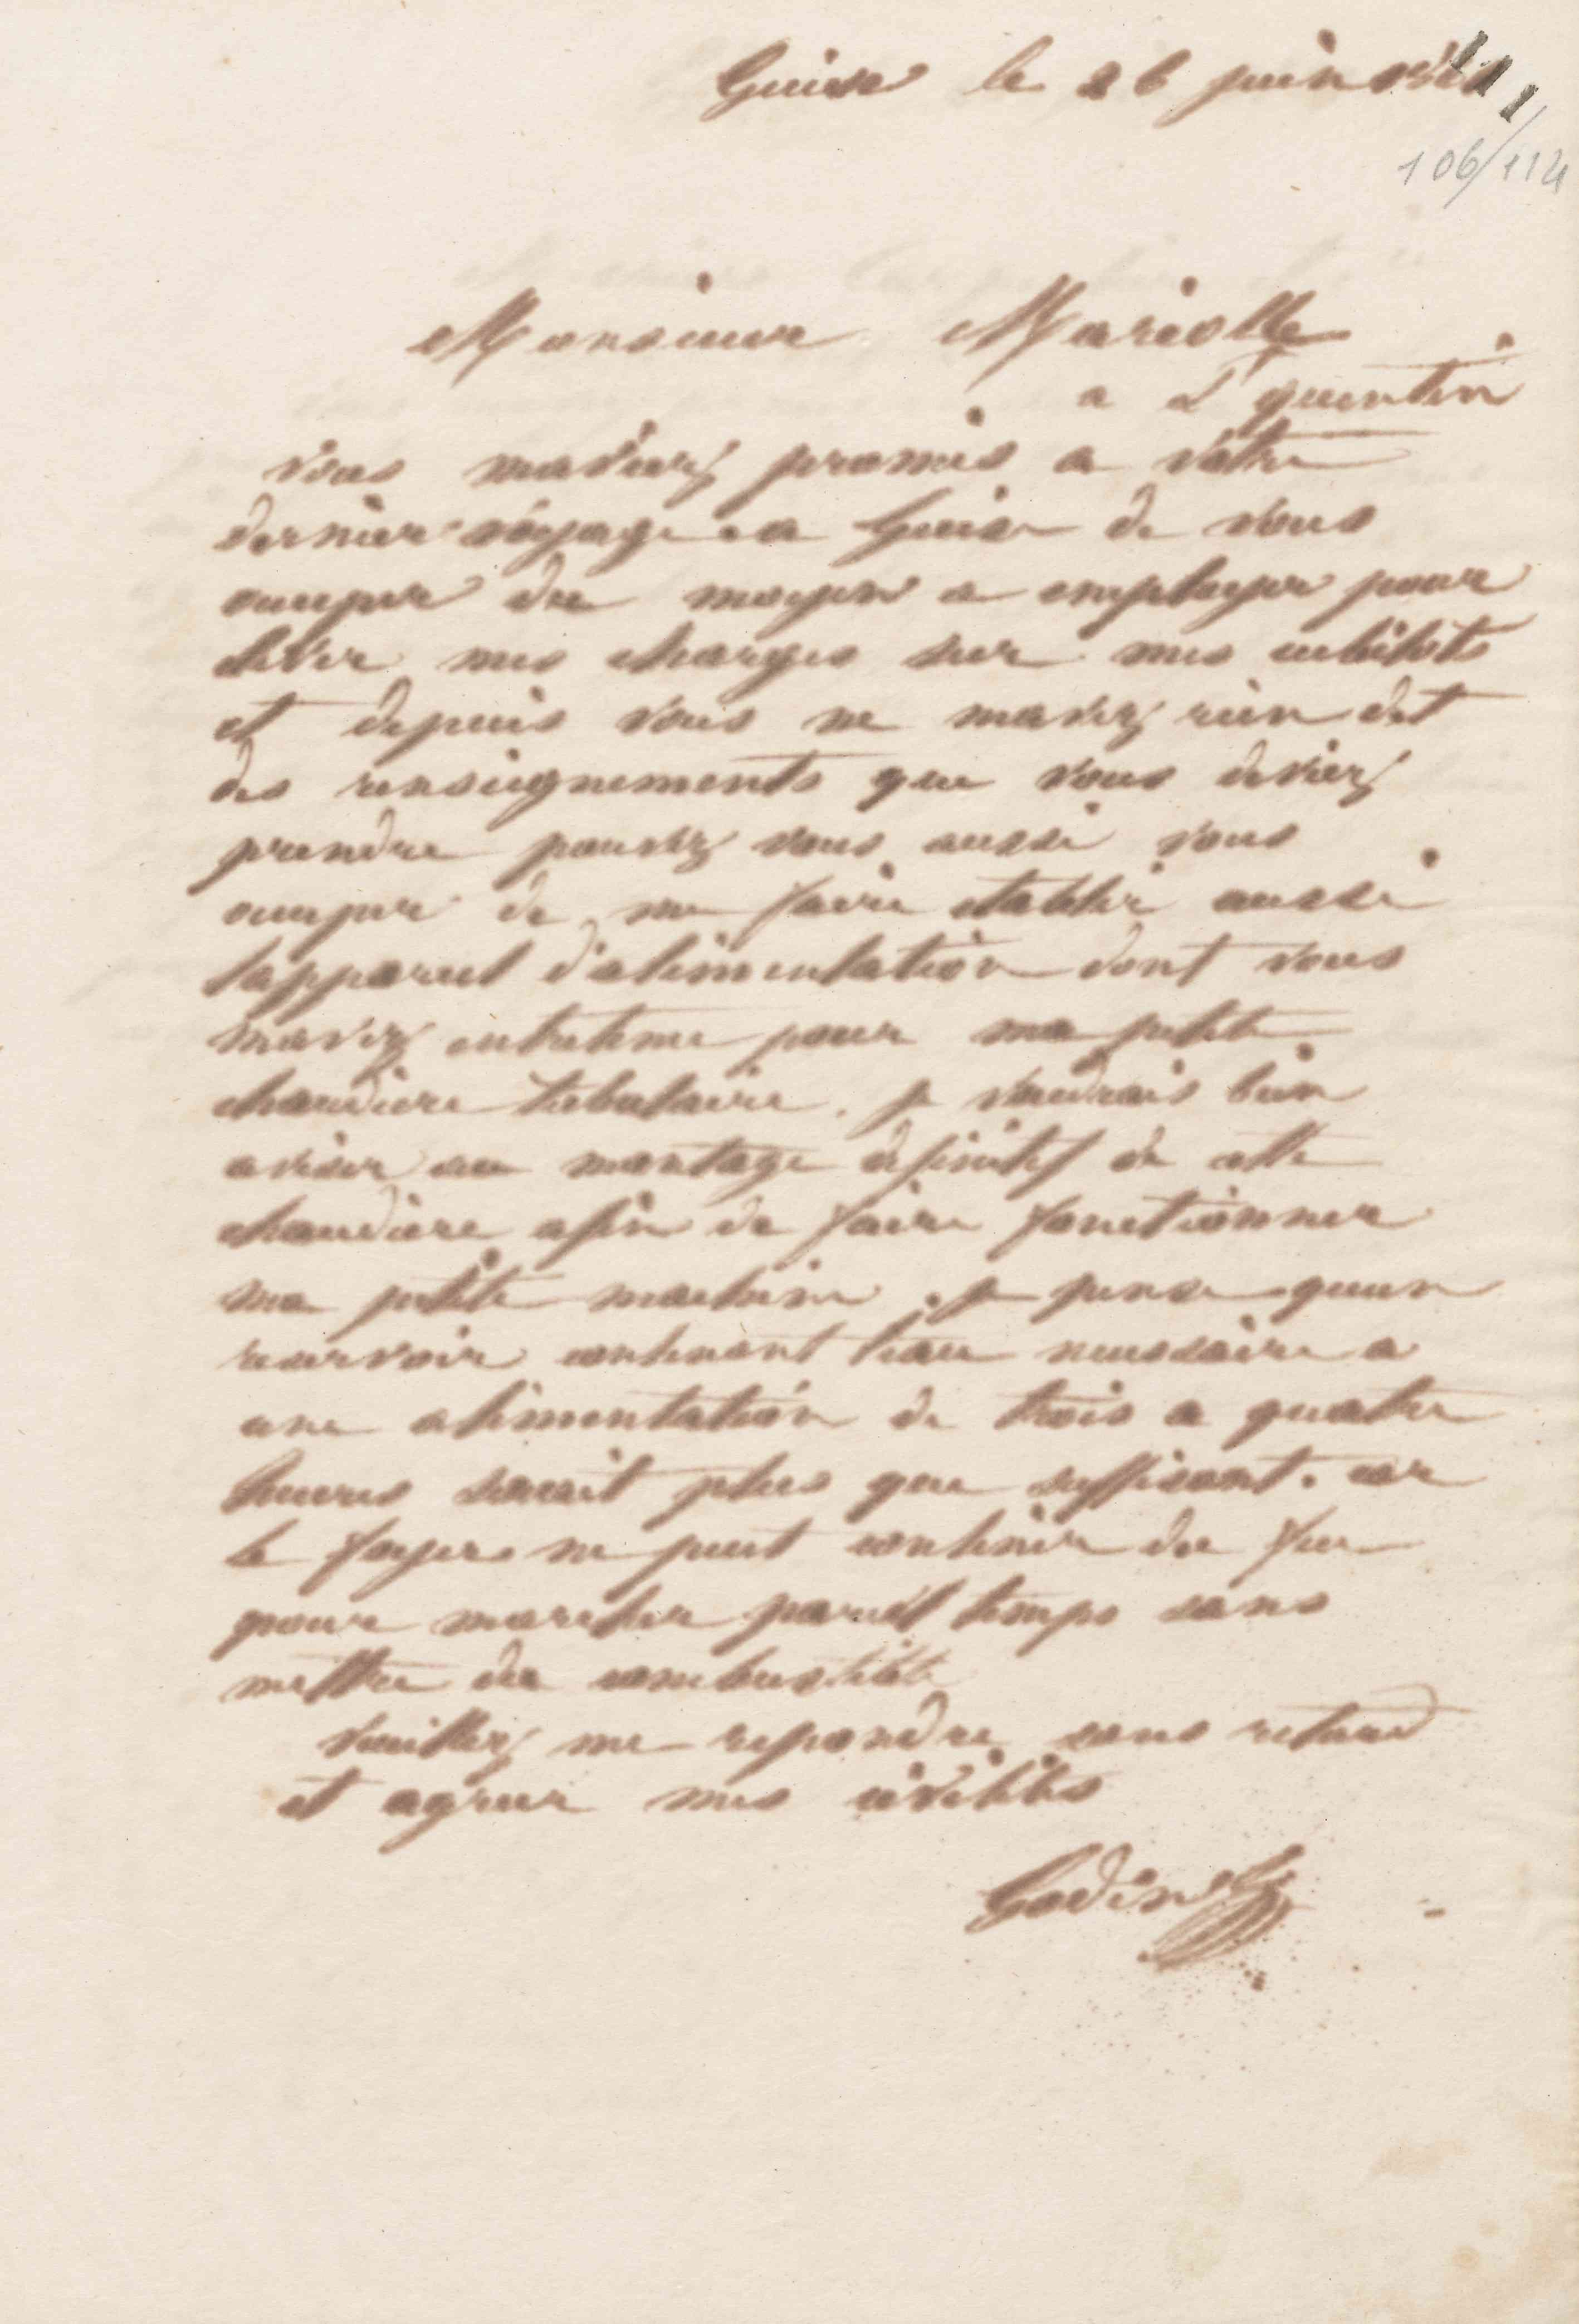 Guise le 26 juin
111
106/114
Monsieur Mariolle
a St quentin
vous maviez promis a votre
dernier voyage a Guise de vous
occuper du moyen a employer pour
elever mes charges sur mes cubilots
et depuis vous ne mavez rien dit
des renseignements que vous deviez
prendre pouvez vous aussi vous
occuper de me faire etablir aussi
lappareil d'alimentation dont vous
mavez entretenu pour ma petite
chaudiere tubulaire. je voudrais bien
aviser au montage definitif de cette
chaudiere afin de faire fonctionner
ma petite machine. je pense quun
reservoir contenant leau necessaire a
une alimentation de trois a quatre
heures serait plus que suffisant. car
le foyer ne peut contenir du feu
pour marcher pareil temps sans
mettre du combustible
Veuillez me repondre sans retard
et agreer mes civilités
Godin